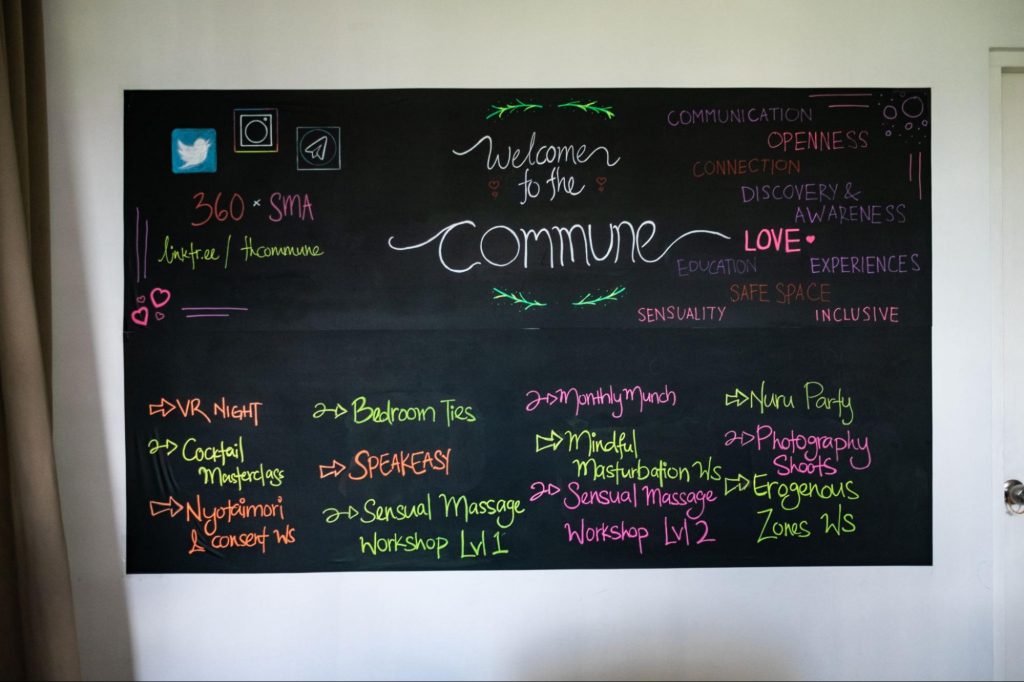 360 x SMA
linktr.ee/thcommune
Welcome
to the
Commune
COMMUNICATION
OPENNESS
CONNECTION
DISCOVERY &
AWARENESS
LOVE
EDUCATION
EXPERIENCES
SAFE SPACE
SENSUALITY
INCLUSIVE
VR NIGHT
Cocktail
Masterclass
Nyotaimori
& consent Ws
Bedroom Ties
SPEAKEASY
Sensual Massage
Workshop Lvl 1
Monthly Munch
Mindful
Masturbation Ws
Sensual Massage
Workshop Lvl 2
Nuru Party
Photography
Shoots
Erogenous
Zones Ws